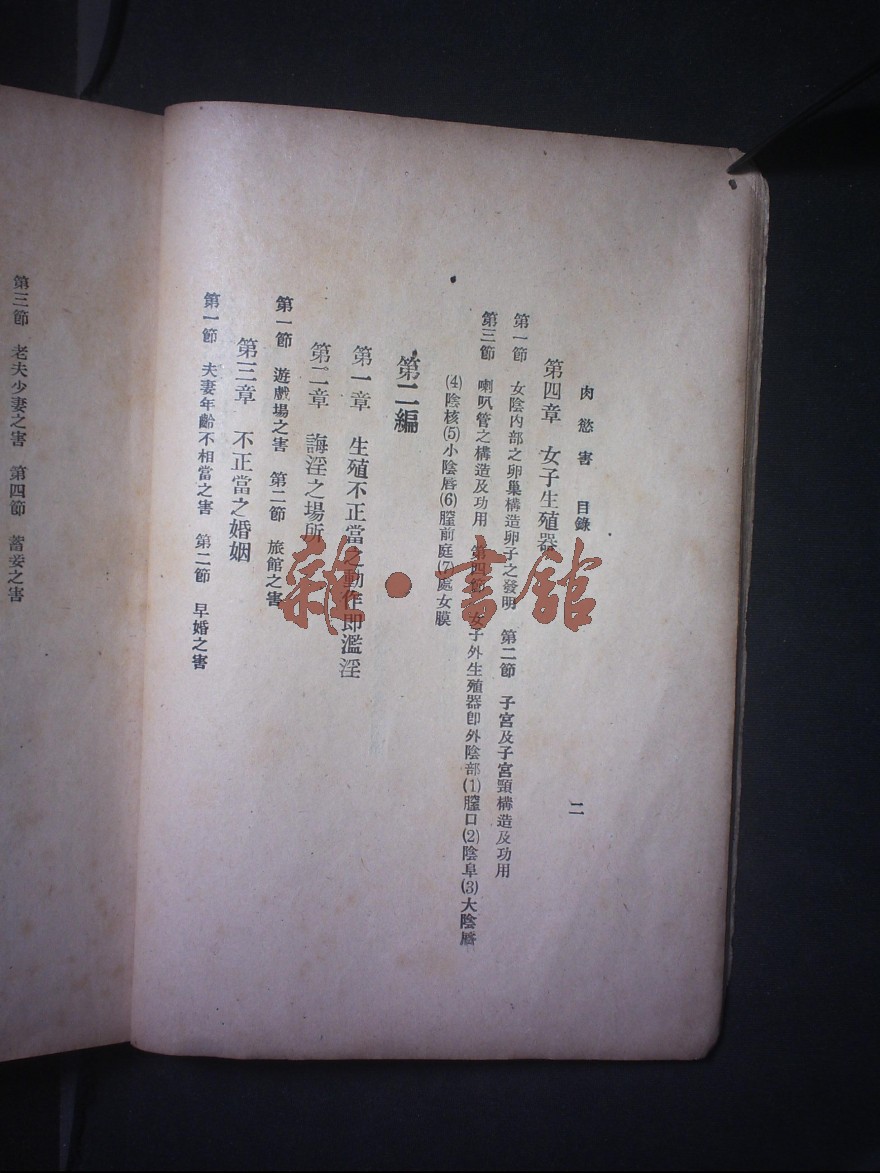 肉慾害 目錄 二
第四章 女子生殖器
第一節 女陰內部之卵巢構造卵子之發明 第二節 子宮及子宮頸構造及功用
第三節 喇叭管之構造及功用 第四節 女子外生殖器卽外陰部(1)膣口(2)陰阜(3)大陰唇
(4)陰核(5)小陰唇(6)膣前庭(7)處女膜
第二編
第一章 生殖不正當之動作即濫淫
第二章 誨淫之場所
第一節 遊戲場之害 第二節 旅館之害
第三章 不正當之婚姻
第一節 夫妻年齡不相當之害 第二節 早婚之害
第三節 老夫少妻之害 第四節 蓄妾之害
雜·書館